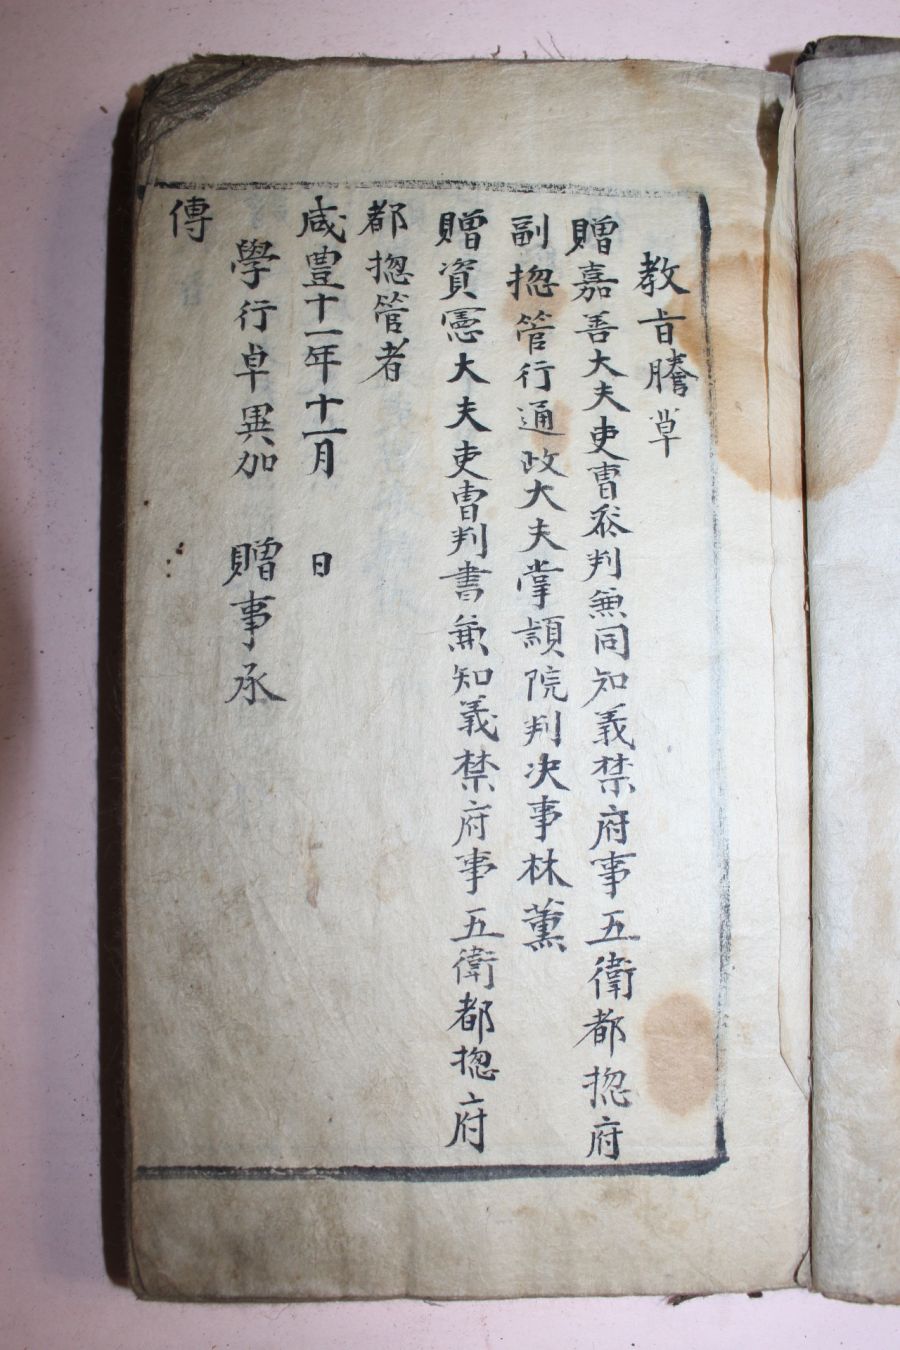 教旨謄草
贈嘉善大夫吏曺叅判兼同知義禁府事五衛都捴府
副捴管行通政大夫掌隷院判决事林薰
贈資憲大夫吏曺判書兼知義禁府事五衛都捴府
都捴管者
咸豊十一年十一月 日
學行卓異加 贈事承
傳